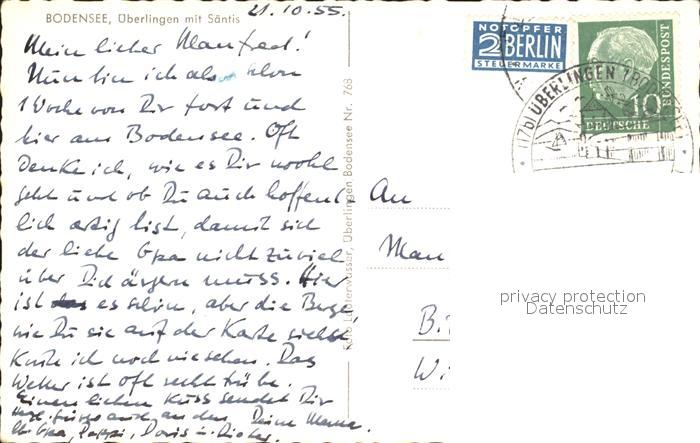 BODENSEE, Überlingen mit Säntis
21.10.55.
Mein lieber Manfred!
Nun bin ich also schon
1 Woche von Dir fort und
hier am Bodensee. Oft
denke ich, wie es Dir wohl
geht und ob Du auch hoffent-
lich artig bist, damit sich
der liebe Opa nicht zuviel
über Dich ärgern muss. Hier
ist es schön, aber die Berge,
wie Du sie auf der Karte siehst,
konnte ich noch nie sehen. Das
Wetter ist oft recht trübe.
Einen lieben Kuss sendet Dir
Deine Mama.
Herzl. Grüsse auch an den
lb. Opa, Pappi, Doris u.
Überlingen Bodensee Nr. 768
NOTOPFER
2 BERLIN
STEUERMARKE
DEUTSCHE
BUNDESPOST
10
(17b) ÜBERLINGEN
An
Man
Bi
Wi
privacy protection
Datenschutz